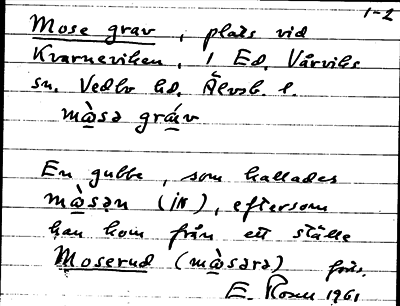 1-2
Mose grav, plats vid
Kvarneviken, 1 Ed, Vårviks
sn. Vedbo hd. Älvsb. l.
mɷ̀sə gráv
En gubbe, som kallades
mɷ̀sən (IN), eftersom
han kom från ett ställe
Moserud (mɷ̀sərə)
E. Rosen 1961